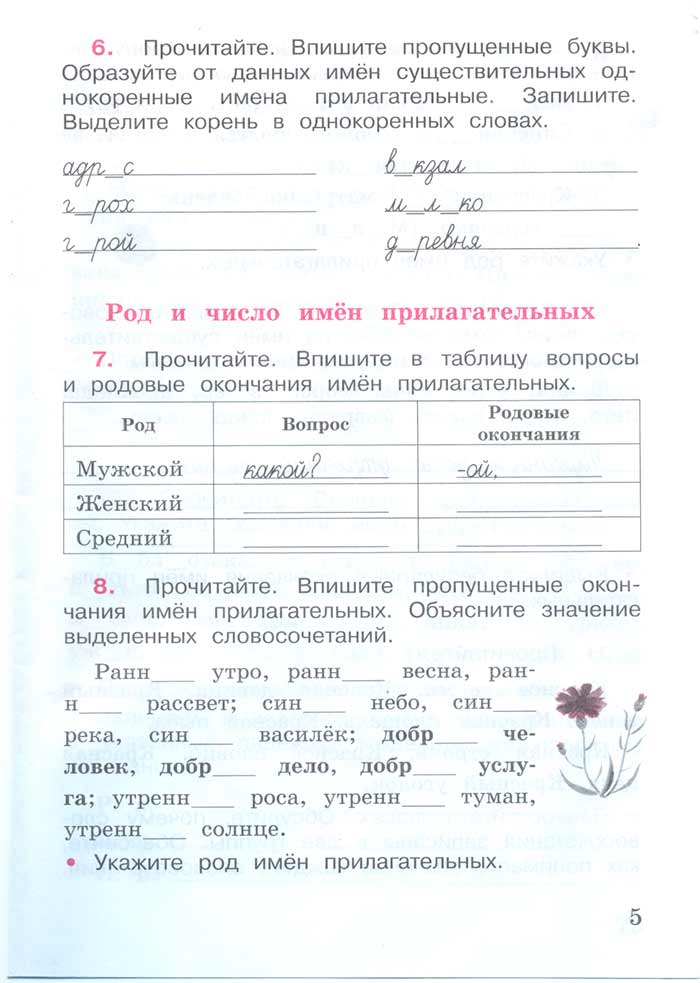 6. Прочитайте. Впишите пропущенные буквы.
Образуйте от данных имён существительных од-
нокоренные имена прилагательные. Запишите.
Выделите корень в однокоренных словах.
адр_с в_кзал
г_рох м_л_ко
г_рой д_ревня .
Род и число имён прилагательных
7. Прочитайте. Впишите в таблицу вопросы
и родовые окончания имён прилагательных.
Род Вопрос Родовые
окончания
Мужской какой? -ой,
Женский
Средний
8. Прочитайте. Впишите пропущенные окон-
чания имён прилагательных. Объясните значение
выделенных словосочетаний.
Ранн___ утро, ранн___ весна, ран-
н___ рассвет; син___ небо, син___
река, син___ василёк; добр___ че-
ловек, добр___ дело, добр___ услу-
га; утренн___ роса, утренн___ туман,
утренн___ солнце.
• Укажите род имён прилагательных.
5